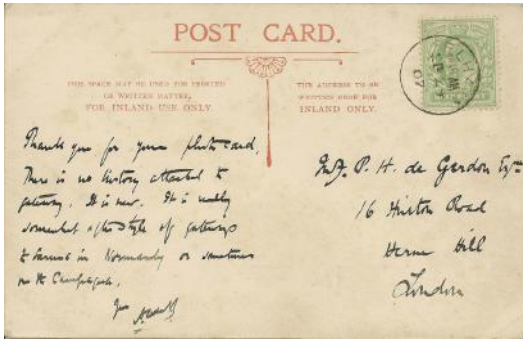 POST CARD.
THIS SPACE MAY BE USED FOR PRINTED
OR WRITTEN MATTER,
FOR INLAND USE ONLY.
THE ADDRESS TO BE
WRITTEN HERE FOR
INLAND ONLY.
07
Thank you for your photo card.
There is no history attached to
gateway. It is new. It is really
somewhat after style of gateways
to farms in Normandy or sometimes
on the
P. H. de Gerdon Esq
16 Hinton Road
Herne Hill
London